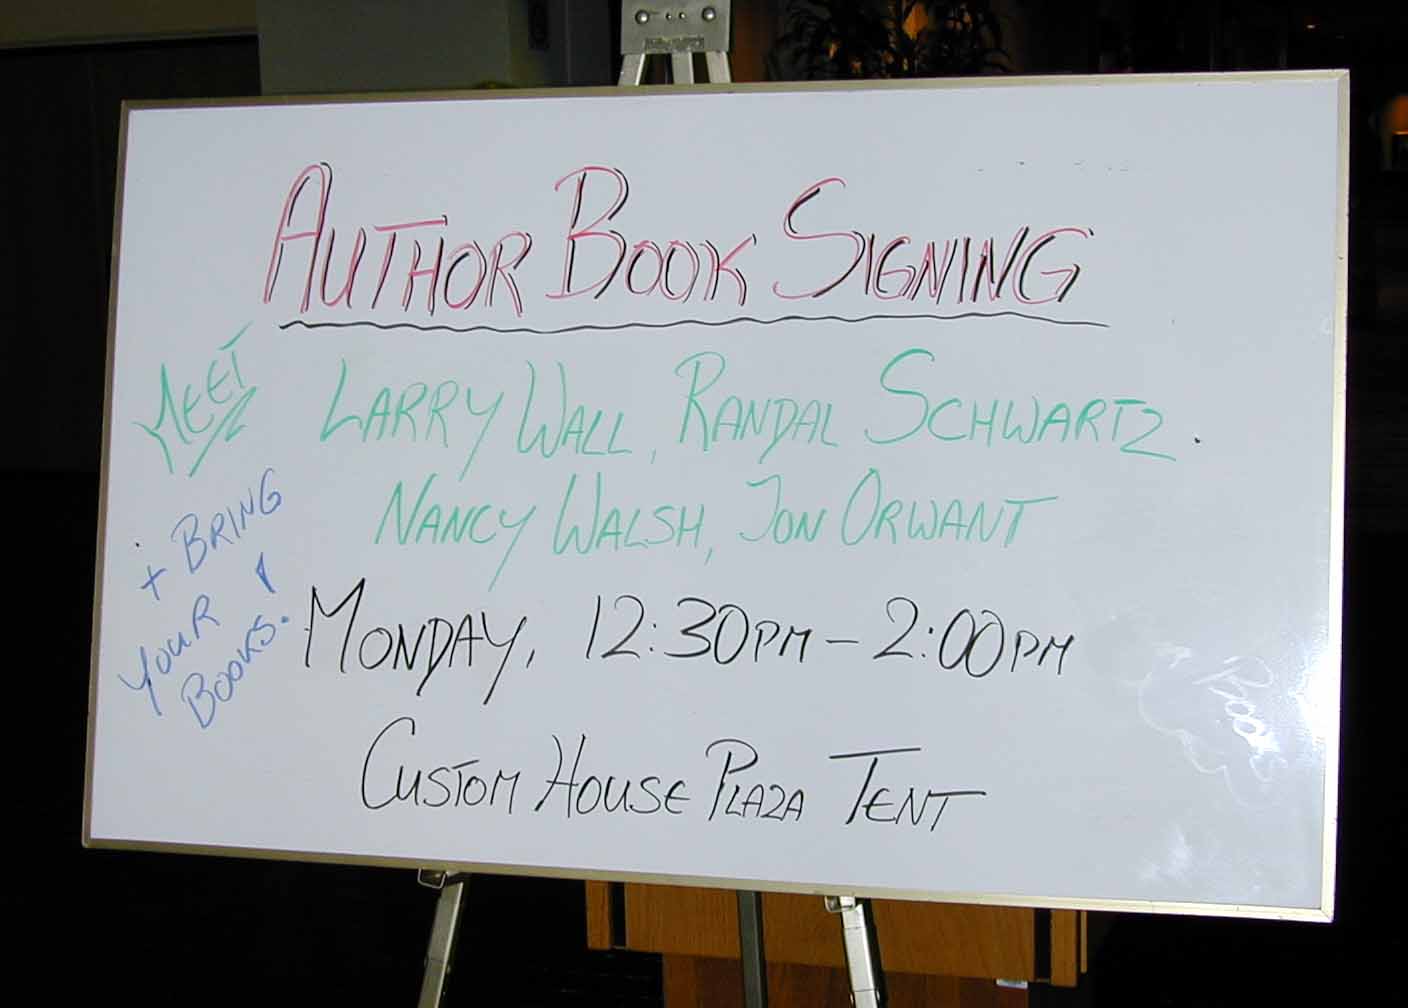 AUTHOR BOOK SIGNING
MEET
LARRY WALL, RANDAL SCHWARTZ.
NANCY WALSH, JON ORWANT
+ BRING
YOUR
BOOKS!
MONDAY, 12:30PM - 2:00PM
CUSTOM HOUSE PLAZA TENT